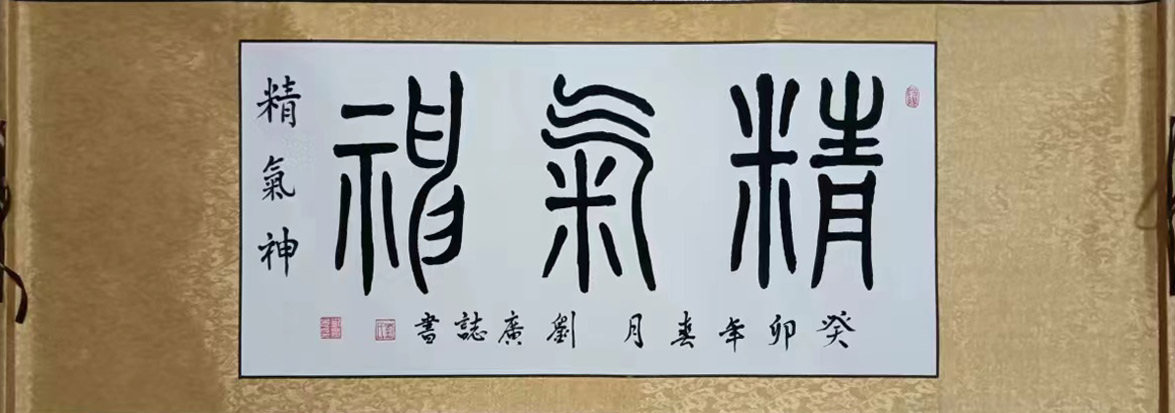 精氣神
精氣神
癸卯年春月劉廣誌書